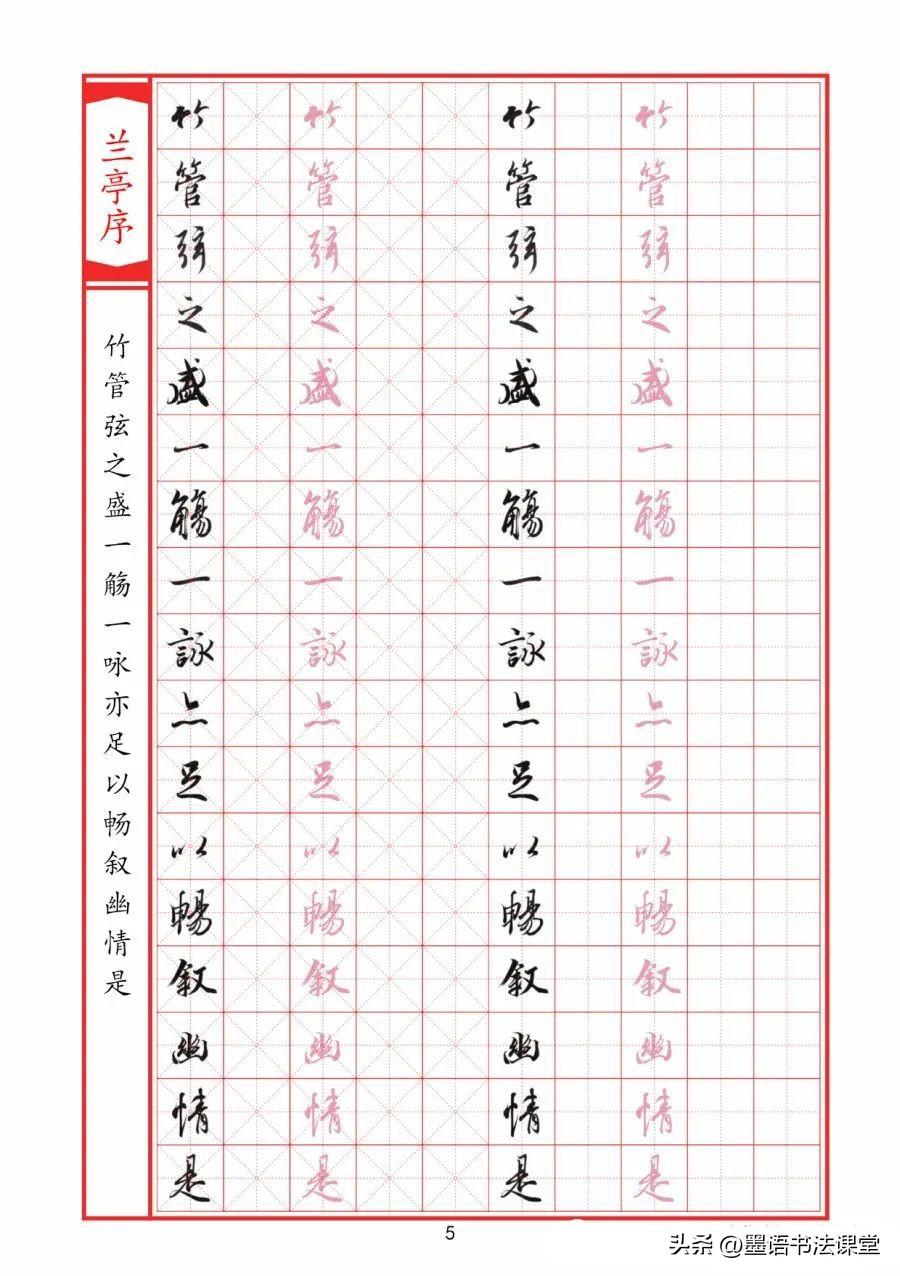 兰亭序
竹管弦之盛一觞一咏亦足以畅叙幽情是
竹管弦之盛一觴一詠亦足以暢叙幽情是
竹管弦之盛一觴一詠亦足以暢叙幽情是
竹管弦之盛一觴一詠亦足以暢叙幽情是
竹管弦之盛一觴一詠亦足以暢叙幽情是
5
头条 @墨语书法课堂